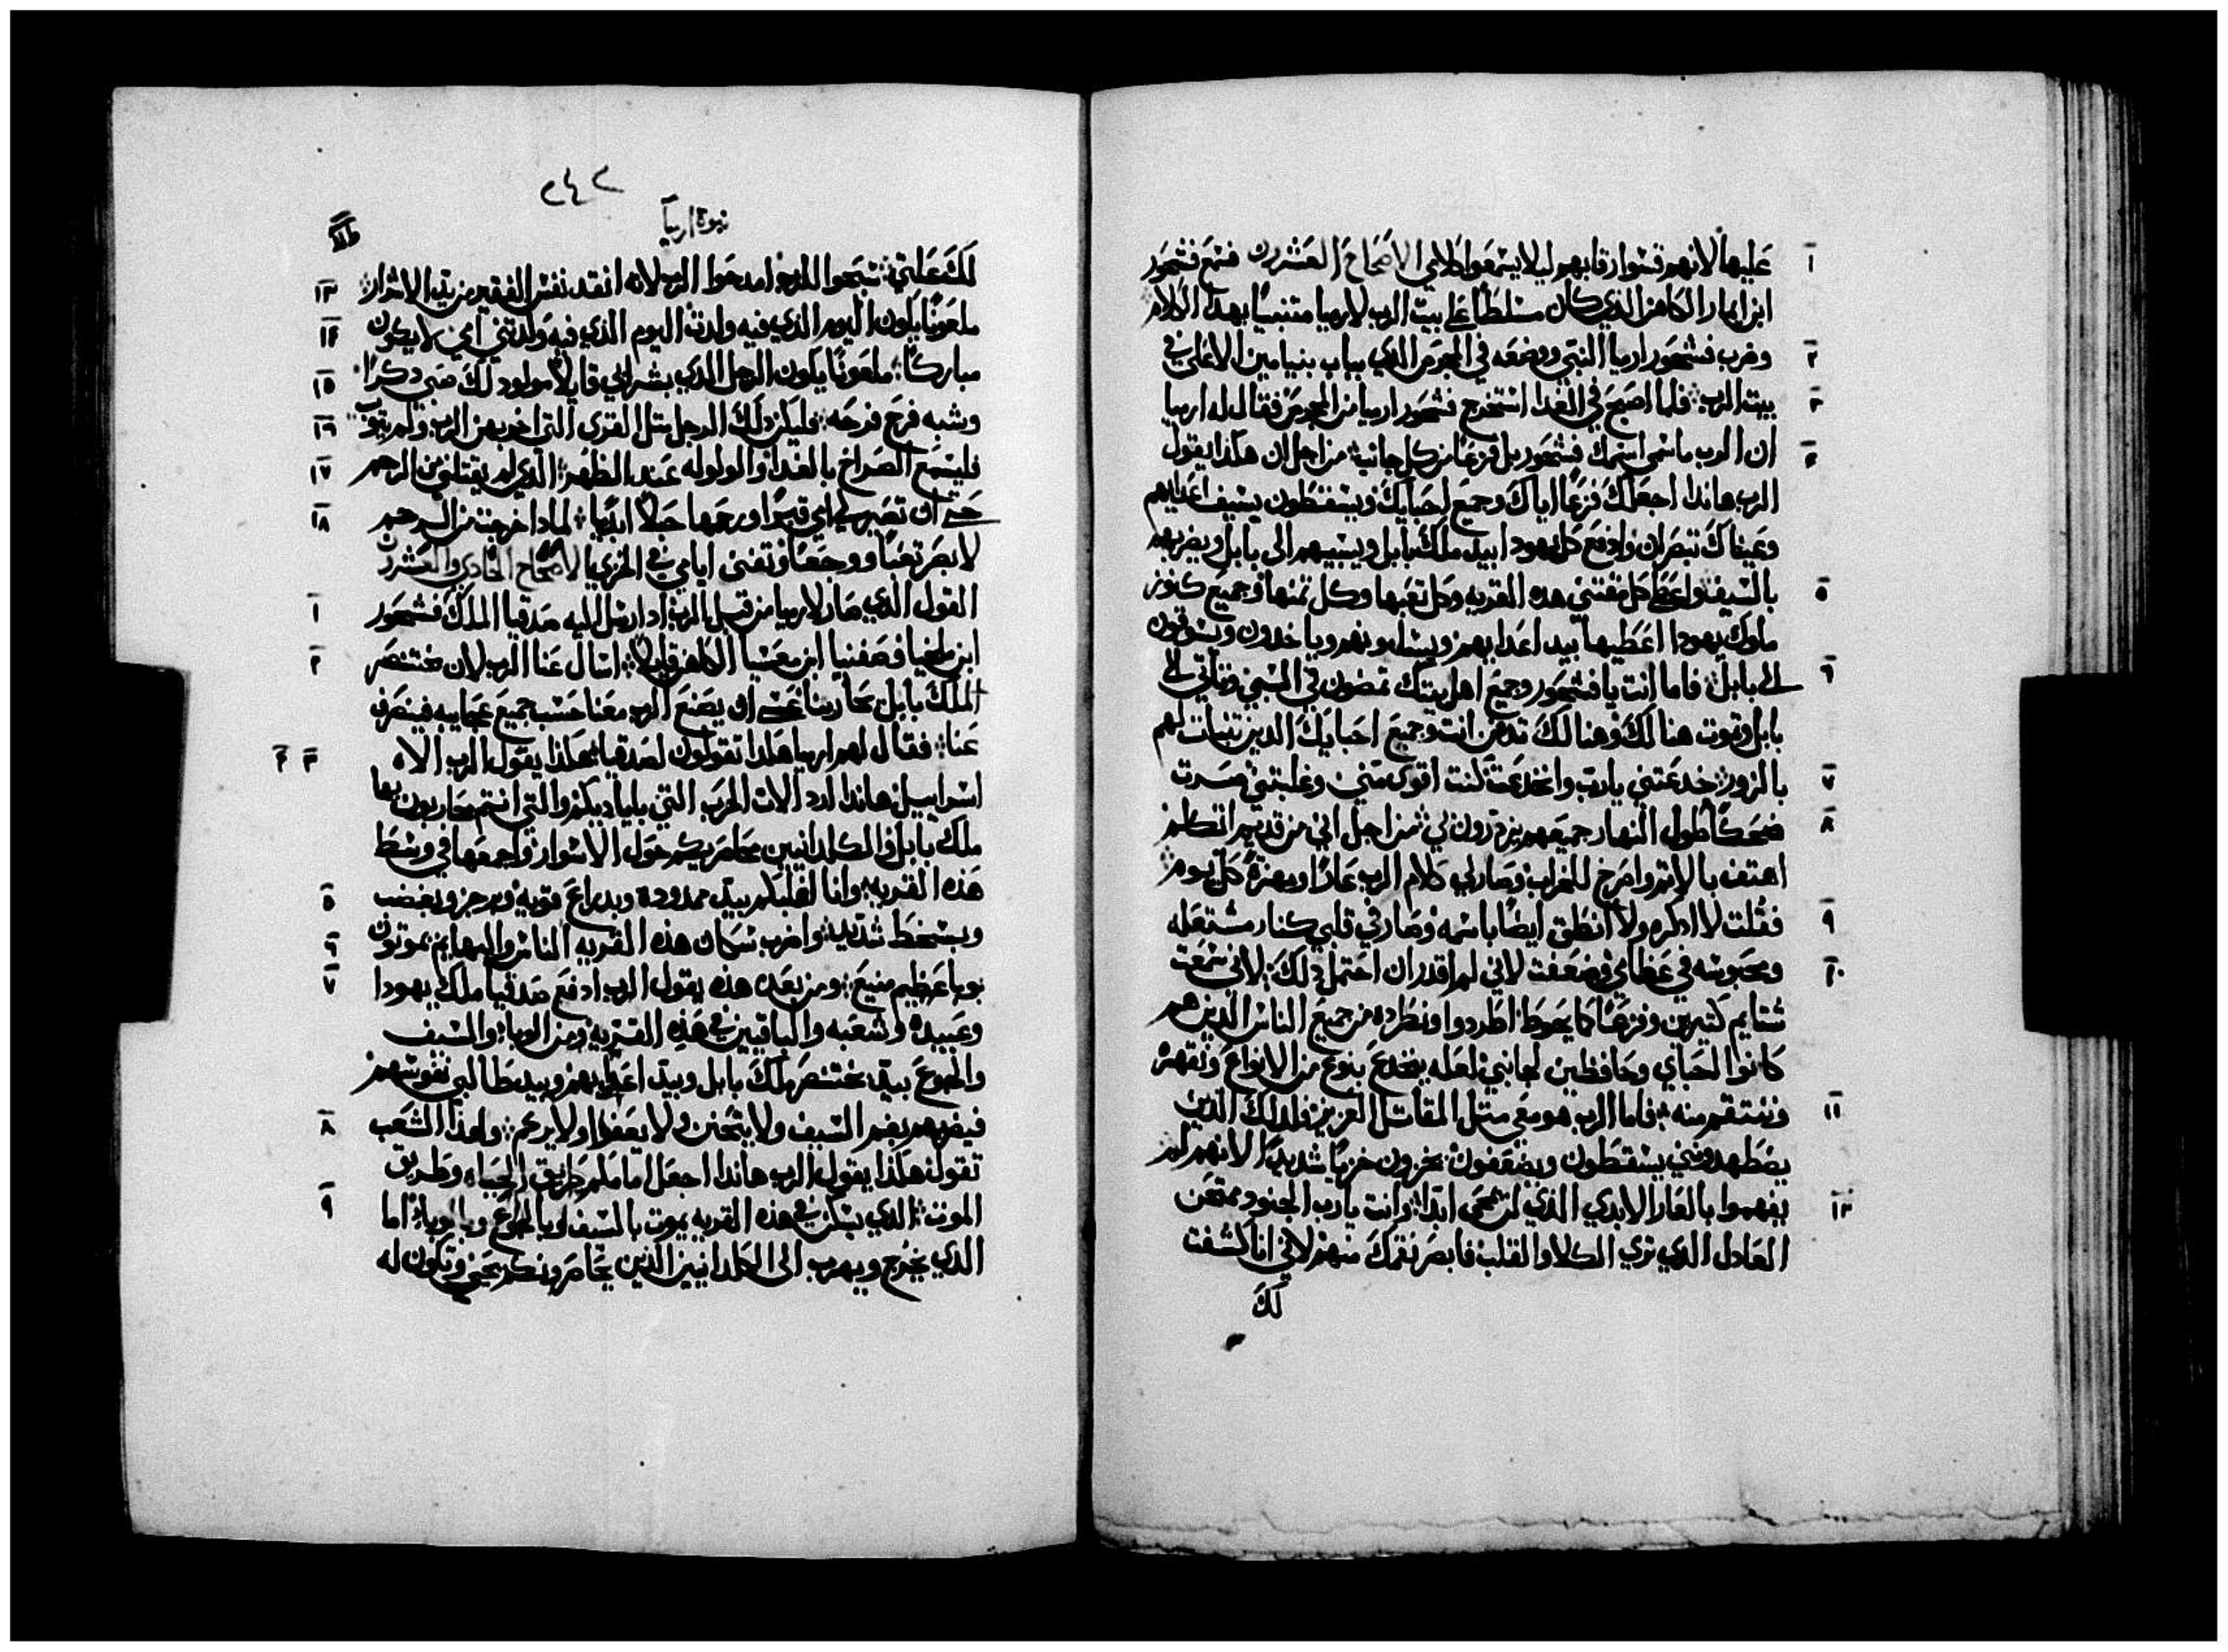 عليها لانهم قسوا رقابهم ليلا يسمعوا كلامي الاصحاح العشرون فسمع فشحور
ابن ايمار الكاهن الذي كان مسلطا على بيت الرب لارميا متنبيا بهدا الكلام
وضرب فشحور ارميا النبي ووضعه في المجرمر الدي بباب بنيامين الاعلى في
بيت الرب فلما اصبح في الغدا استخرج فشحور ارميا من المجرمر فقال له ارميا
ان الرب ما سمى اسمك فشحور بل فزعا من كل جانب من اجل ان هكذا يقول
الرب هاندا اجعلك فزعا اياك وجميع احبايك ويسقطون بسيف اعدايهم
وعيناك تبصران وادفع كل يهودا بيد ملك بابل ويسبيهم الى بابل ويضربهم
بالسيف واعطي كل مقتني هده القريه وكل تعبها وكل تمنها وجميع كنوز
ملوك يهودا اعطيها بيد اعدايهم ويسلبونهم وياخدون ويسوقون
الى بابل فاما انت يا فشحور وجميع اهل بيتك تمضون في السبي وتاتي الى
بابل وتموت هنالك وهنالك تدفن انت وجميع احبايك الدين تنبات لهم
بالزور خدعتني يا رب وانخدعت كنت اقوى مني وغلبتني صرت
ضحكا طول النهار جميعهم يزدرون بي من اجل اني من قديم اتكلم
اهتف بالاثم واصرخ للخراب وصار لي كلام الرب عارا ومهزة كل يوم
فقلت لا ادكره ولا انطق ايضا باسمه وصار في قلبي كنار مشتعله
ومحبوسه في عظامي وضعفت لاني لم اقدر ان احتمل دلك لاني سمعت
شتايم كتيرين وفزعا كما يحوط اطردوا ونطرده من جميع الناس الذين هم
كانوا احباي وحافظين لجانبي لعله يخدع بنوع من الانواع ونقهره
وننتقم منه فاما الرب هو معي متل المقاتل العزيز فلدلك الدين
يضطهدونني يسقطون ويضعفون يخزون خزيا شديدا لانهم لم
يفهموا بالعار الابدي الذي لن يمحى ابدا وانت يا رب الجنود ممتحن
العادل الدي تري الكلا والقلب فابصر نقمك منهم لاني انا كشفت
لك
٢٤٢
نبوة ارميا
لك علتي سبحوا للرب امدحوا الرب لانه انقد نفس الفقير من يد الاشرار
ملعونا يكون اليوم الدي فيه ولدت اليوم الدي فيه ولدتني امي لا يكون
مباركا ملعونا يكون الرجل الدي بشر ابي قايلا مولود لك صبي دكرا
وشبه فرح فرحه وليكن دلك الرجل متل القرى التي اخربهن الرب ولم يتوب
فليسمع الصراخ بالغدا والولوله عند الظهر الدي لم يقتلني من الرحم
حتى ان تصير لي امي قبرا ورحمها حبلا ابديا لمادا خرجت من الرحم
لابصر تعبا ووجعا وتفنى ايامي في الخزي الاصحاح الحادي والعشرون
القول الدي صار لارميا من قبل الرب اد ارسل اليه صدقيا الملك فشحور
ابن ملخيا وصفنيا ابن معسيا الكاهن قايلا اسال عنا الرب لان بختنصر
الملك بابل يحاربنا عسى ان يصنع الرب معنا حسب جميع عجايبه فينصرف
عنا فقال لهم ارميا هكدا تقولون لصدقيا هكذا يقول الرب الاه
اسراييل هاندا ارد الات الحرب التي باياديكم والتي انتم تحاربون بها
ملك بابل والكلدانيين محاصريكم حول الاسوار واجمعها في وسط
هذه القريه وانا اغلبكم بيد ممدوده وبدراع قويه وبرجز وبغضب
وبسخط شديد واضرب سكان هذه القريه الناس والبهايم يموتون
بوبا عظيم منيع ومن بعد هذه يقول الرب ادفع صدقيا ملك يهودا
وعبيده وشعبه والباقيين في هذه القريه ومن الوبا والسيف
والجوع بيد بختنصر ملك بابل وبيد اعدايهم وبيد طالبي نفوسهم
فيضربهم بفم السيف ولا يتحنن ولا يعفوا ولا يرحم ولهذا الشعب
تقول هكذا يقول الرب هاندا اجعل امامكم طريق الحياه وطريق
الموت الدي يسكن في هذه القريه يموت بالسيف وبالجوع وبالوبا اما
الدي يخرج ويهرب الى الكلدانيين الذين يحاصرونكم يحيى وتكون له